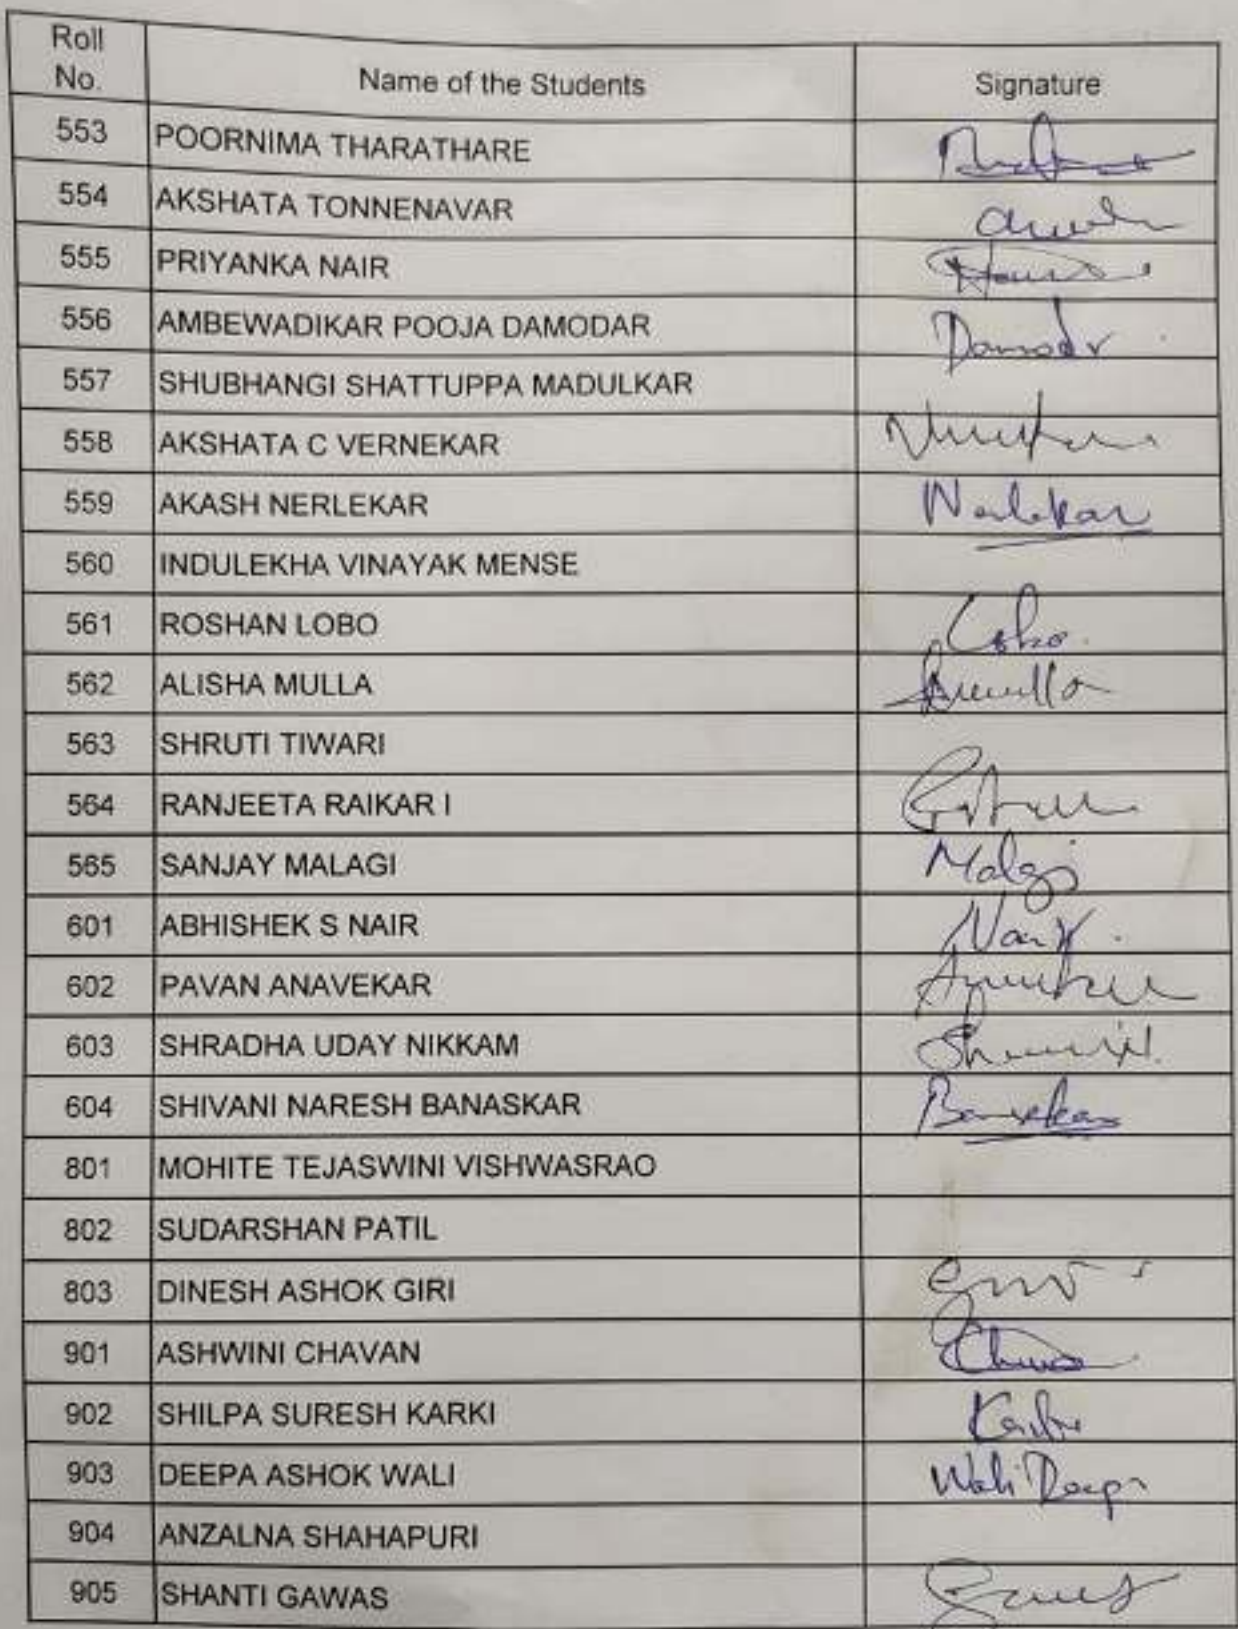 Roll No. Name of the Students Signature
553 POORNIMA THARATHARE
554 AKSHATA TONNENAVAR
555 PRIYANKA NAIR
556 AMBEWADIKAR POOJA DAMODAR Damodr
557 SHUBHANGI SHATTUPPA MADULKAR
558 AKSHATA C VERNEKAR
559 AKASH NERLEKAR Nerlekar
560 INDULEKHA VINAYAK MENSE
561 ROSHAN LOBO Lobo
562 ALISHA MULLA
563 SHRUTI TIWARI
564 RANJEETA RAIKAR I
565 SANJAY MALAGI Malagi
601 ABHISHEK S NAIR
602 PAVAN ANAVEKAR
603 SHRADHA UDAY NIKKAM
604 SHIVANI NARESH BANASKAR
801 MOHITE TEJASWINI VISHWASRAO
802 SUDARSHAN PATIL
803 DINESH ASHOK GIRI
901 ASHWINI CHAVAN
902 SHILPA SURESH KARKI
903 DEEPA ASHOK WALI Wali Deepa
904 ANZALNA SHAHAPURI
905 SHANTI GAWAS